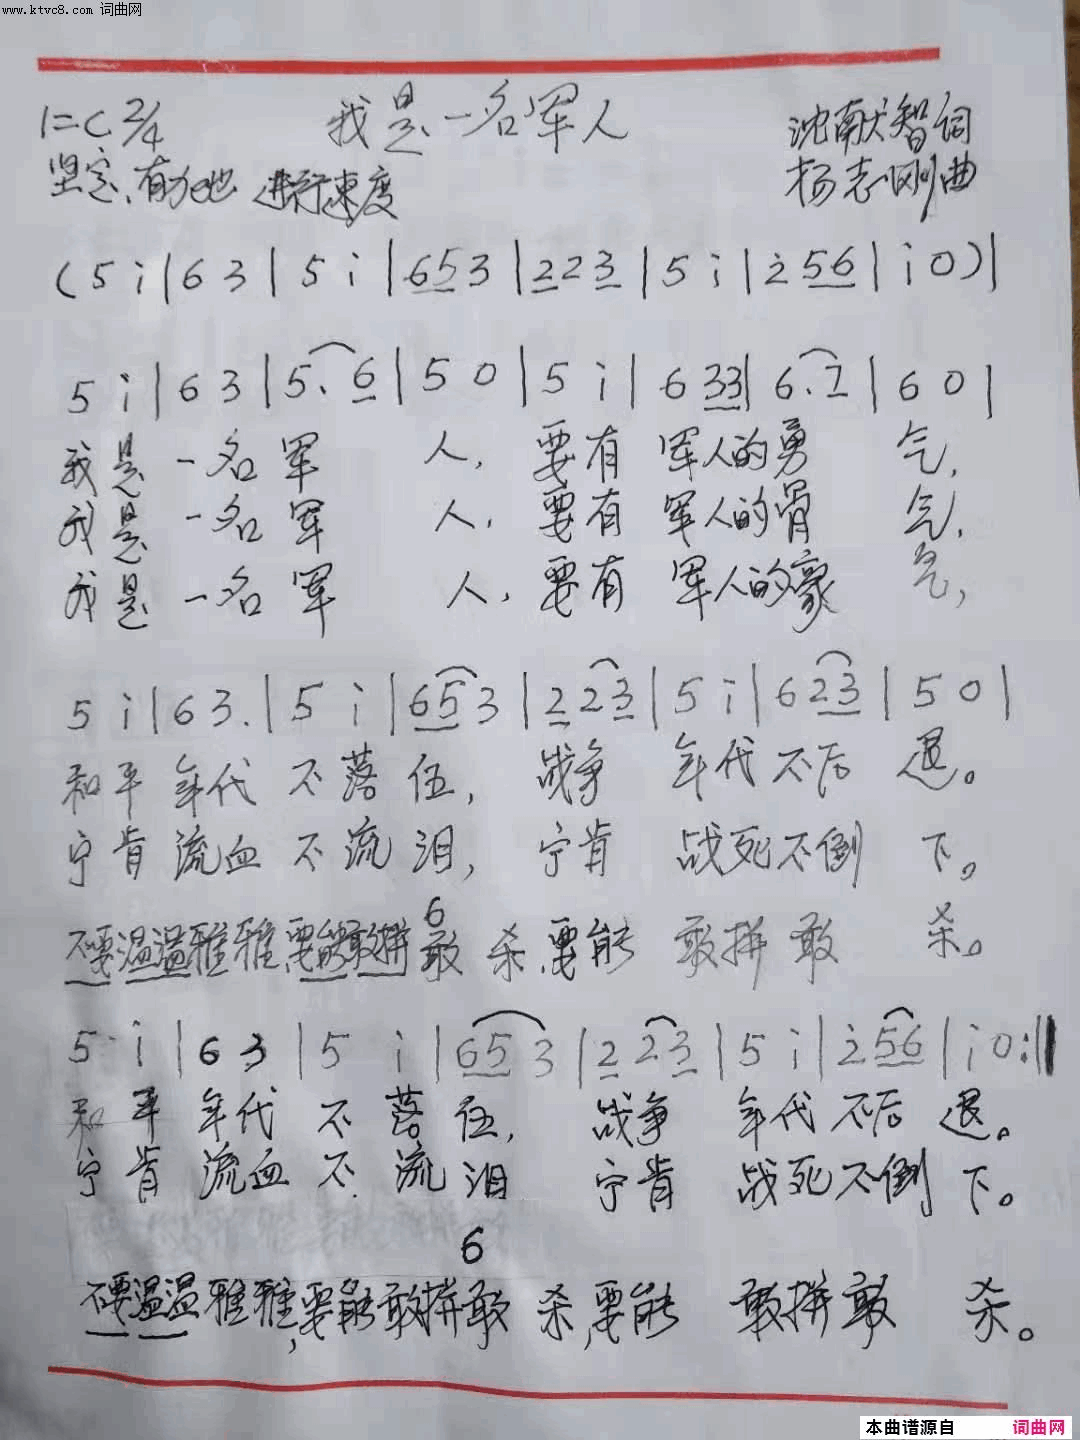 www.ktvc8.com 词曲网
1=C 2/4 我是一名军人 沈献智词
坚定、有力地 进行速度 杨志刚曲
(5 i|6 3|5 i|653|223|5 i|i 56|i 0)|
5 i|6 3|5. 6|5 0|5 i|6 33|6. 1|6 0|
我是 一名 军 人, 要有 军人的勇 气,
我是 一名 军 人, 要有 军人的骨 气,
我是 一名 军 人, 要有 军人的豪 气,
5 i|6 3.|5 i|653|223|5 i|623|5 0|
和平 年代 不落 伍, 战争 年代不后 退。
宁肯 流血 不流 泪, 宁肯 战死不倒 下。
6
不要温温雅雅,要能敢拼敢 杀,要能 敢拼敢 杀。
5 i|6 3|5 i|653|223|5 i|i 56|i 0:‖
和平 年代 不落 伍, 战争 年代不后 退。
宁肯 流血 不流 泪 宁肯 战死不倒 下。
6
不要温温雅雅,要能敢拼敢 杀,要能 敢拼敢 杀。
本曲谱源自 词曲网